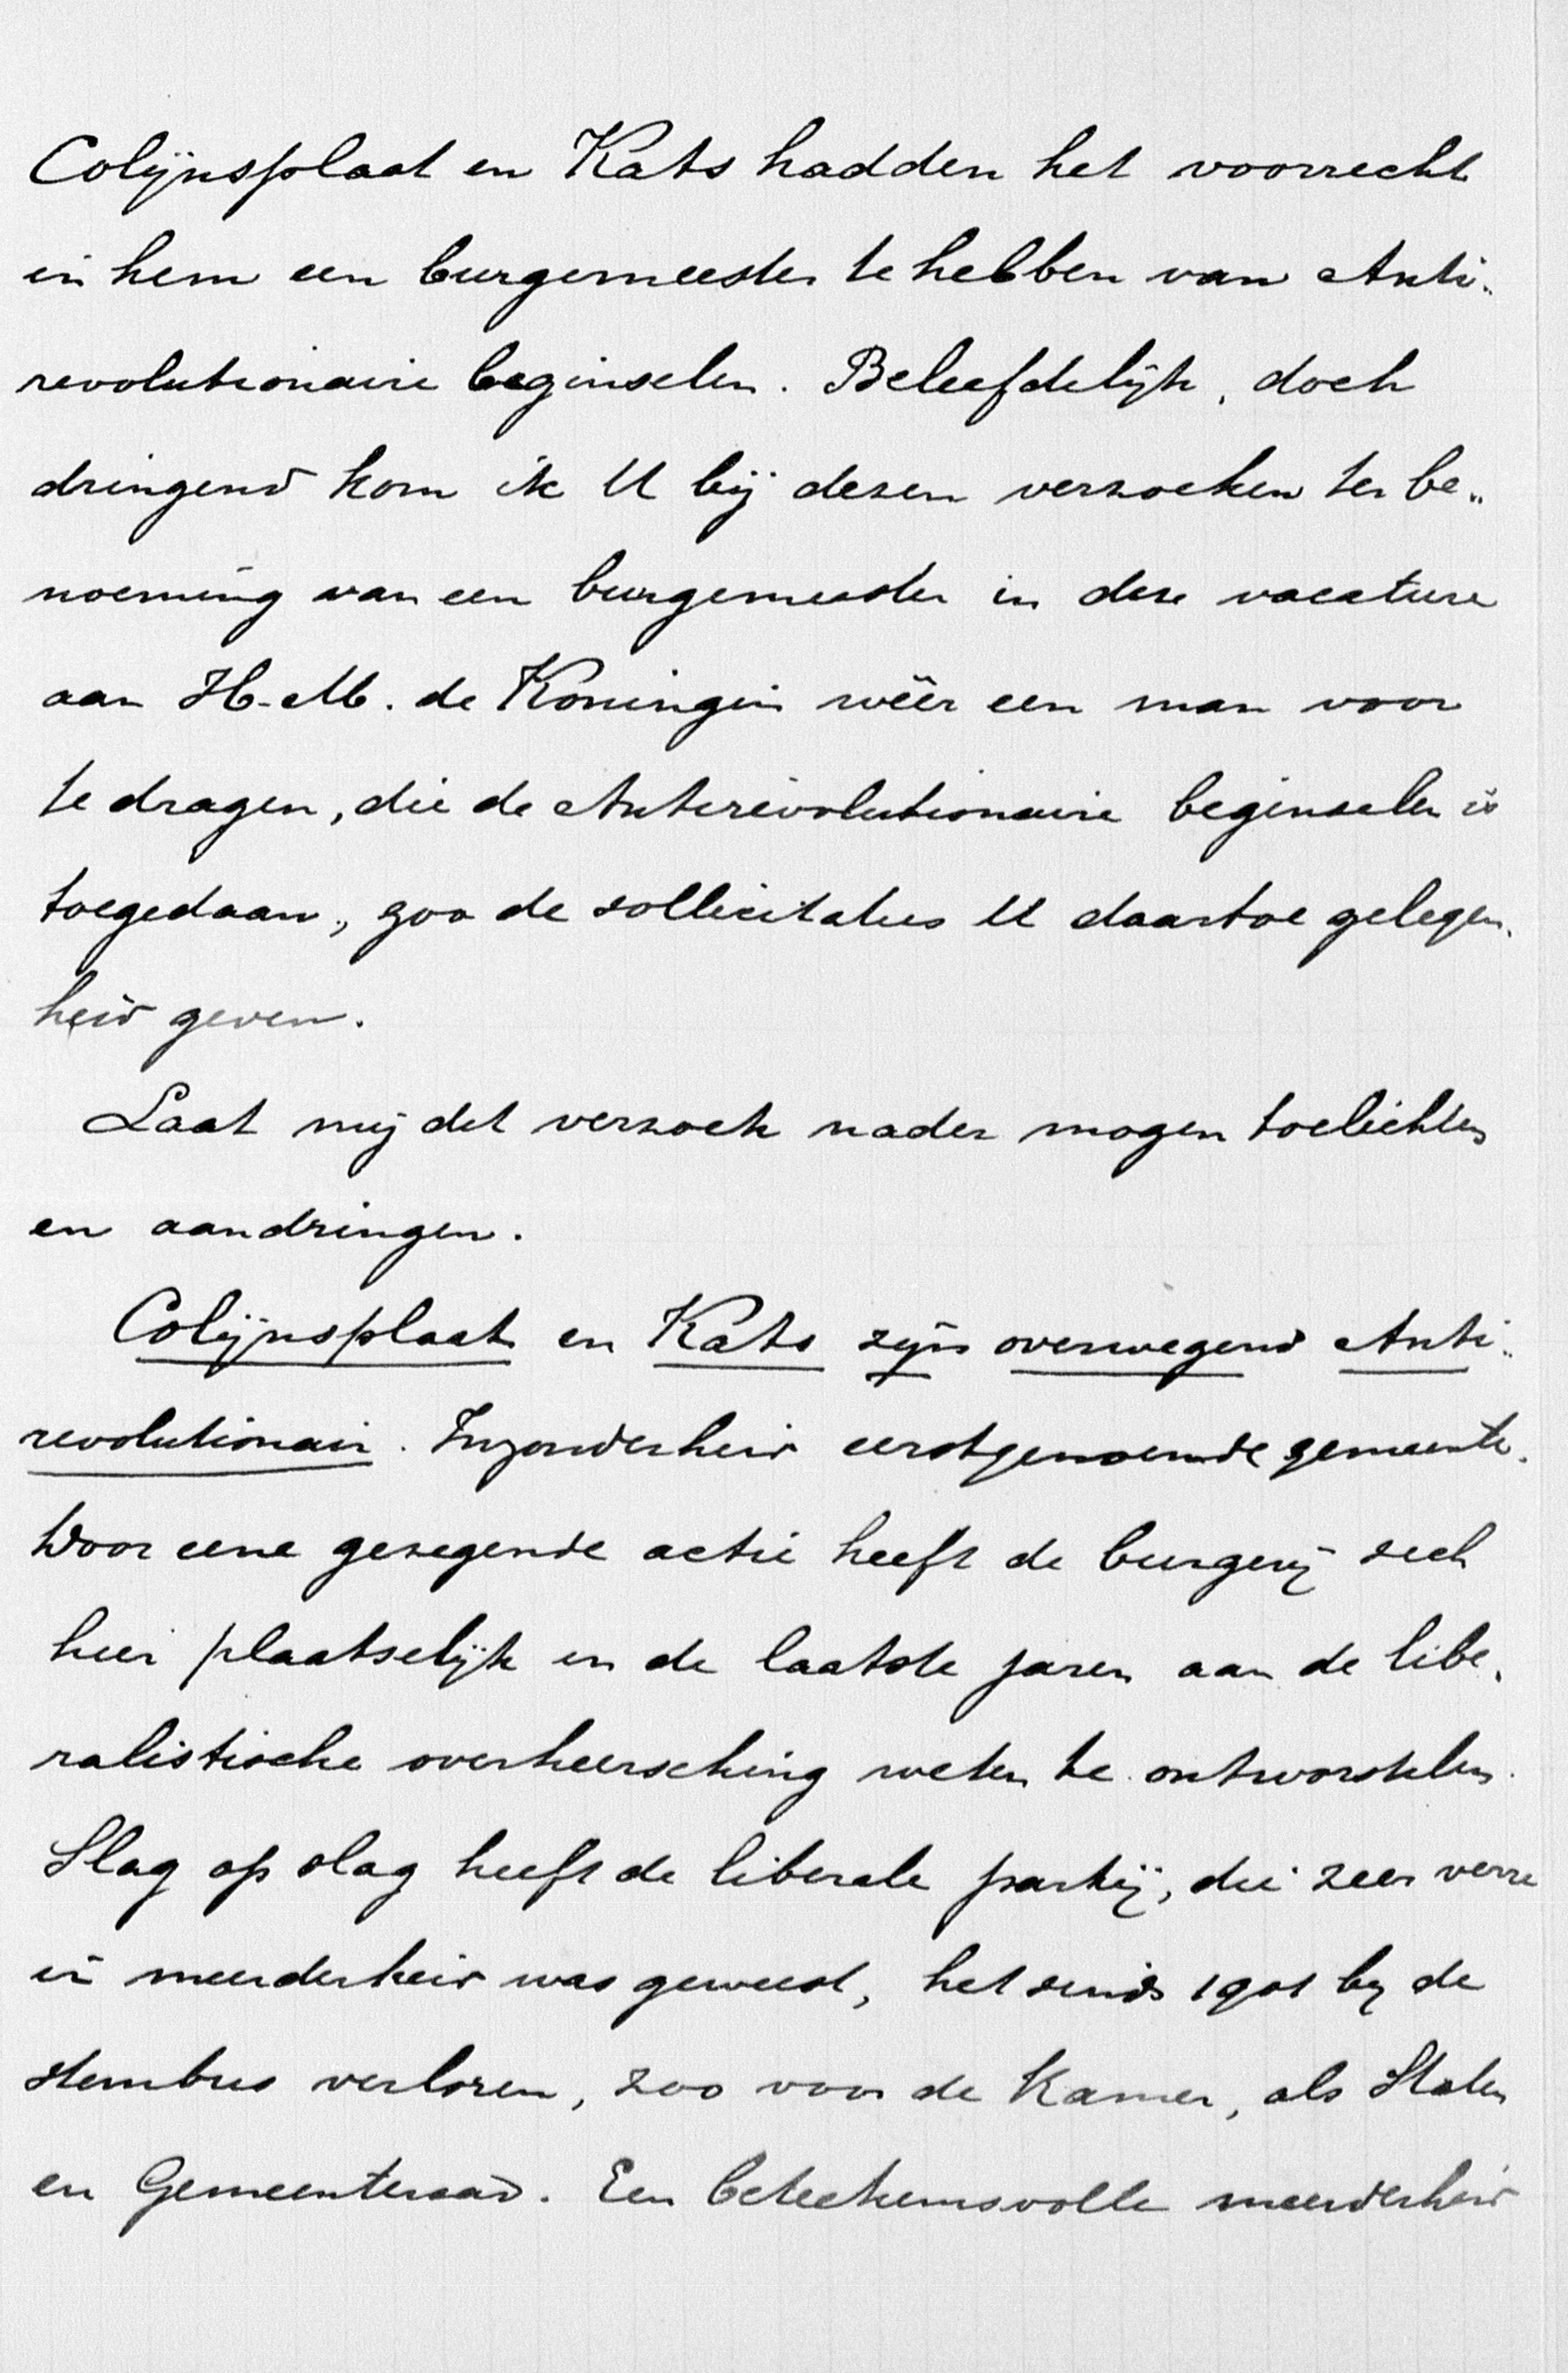 Colijnsplaat en Kats hadden het voorrecht
in hem een burgemeester te hebben van Anti-
revolutionaire beginselen. Beleefdelijk, doch
dringend kom ik U bij dezen verzoeken ter be-
noeming van een burgemeester in deze vacature
aan H.M. de Koningin wéér een man voor
te dragen, die de Antirevolutionaire beginselen is
toegedaan, zoo de sollicitaties U daartoe gelegen-
heid geven.
Laat mij dit verzoek nader mogen toelichten
en aandringen.
Colijnsplaat en Kats zijn overwegend Anti-
revolutionair. Inzonderheid eerstgenoemde gemeente.
Door eene gezegende actie heeft de burgerij zich
hier plaatselijk in de laatste jaren aan de libe-
ralistische overheersching weten te ontworstelen.
Slag op slag heeft de liberale partij, die zeer verre
in meerderheid was geweest, het sinds 1901 bij de
stembus verloren, zoo voor de Kamer, als Staten
en Gemeenteraad. Een beteekenisvolle meerderheid